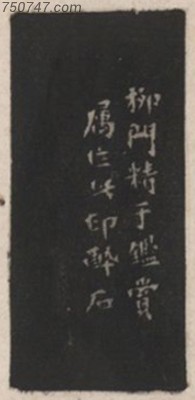 750747.com
柳門精于鑑賞
屬作此印酔石